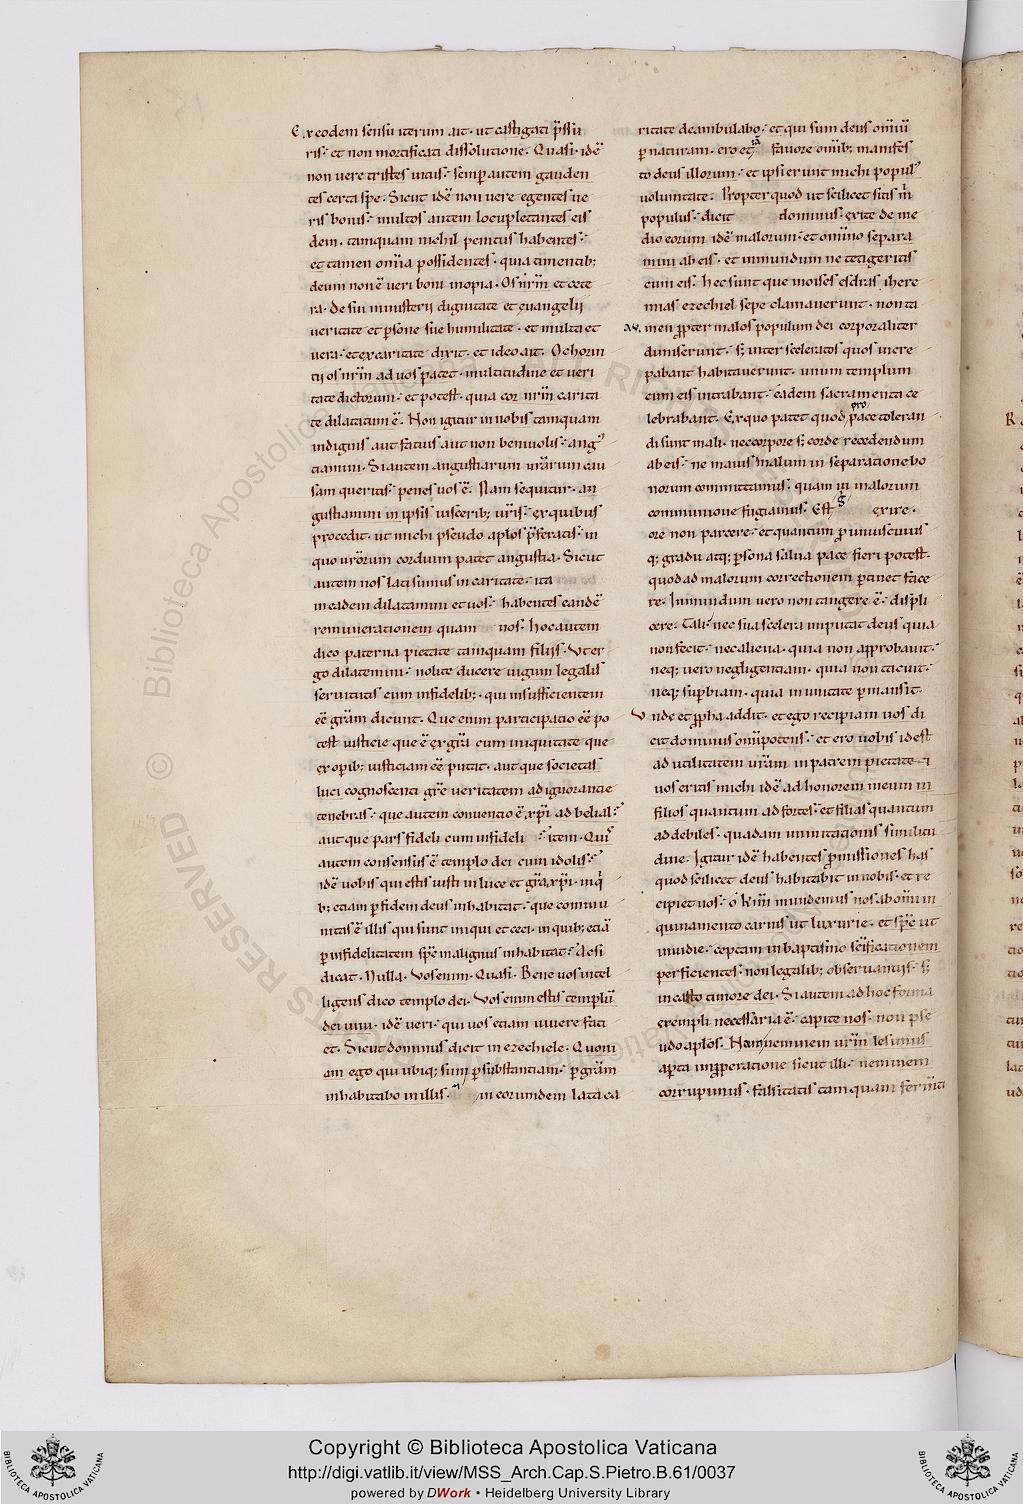 Ex eodem sensu iterum ait · ut castigati p̄ssu
ris · et non mortificati dissolutione · Quasi · idē
non vere tristes uitiis · semp autem gauden
tes certa spe · Sicut idē non vere egentes ve
ris bonis · multos autem locupletantes eis
dem · tamquam nichil penitus habentes ·
et tamen om̄ia possidentes · quia timentib;
deum non ē veri boni inopia · Os nr̄m et cete
ra · de sui ministerii dignitate et euangelii
veritate et psone sue humilitate · et multa et
vera · et ex caritate dixit · et ideo ait · O chorin
tii os nr̄m ad vos patet · multitudine et veri
tate dictorum · et potest · quia cor nr̄m carita
te dilatatum ē · Non igitur in nobis tamquam
indignis aut fatuis aut non benivolis · ang
tiamini · Si autem angustiarum vr̄arum cau
sam queritis · penes vos ē · Nam sequitur · an
gustiamini in ipsis viscerib; vr̄is · ex quibus
procedit · ut michi pseudo aplos p̄feratis · in
quo vr̄orum cordium patet angustia · Sicut
autem nos latissimus in caritate · ita
in eadem dilatamini et vos · habentes eandē
remunerationem quam nos · hoc autem
dico paterna pietate tamquam filiis · Ut er
go dilatemini · nolite ducere iugum legalis
servitutis cum infidelib; · qui insufficientem
eē grām dicunt · Que enim participatio eē po
test iusticie que ē ex grā cum iniquitate que
ex opib; iusticiam eē putat · aut que societas
luci cognoscenti gr̄e veritatem ad ignorantie
tenebras · que autem conventio ē xpi ad belial ·
aut que pars fideli cum infideli · item · Qui
autem consensus ē templo dei cum idolis ·
idē vobis qui estis iusti in luce et grā xpi · in q
b; etiam p fidem deus inhabitat · que commu
nitas ē illis qui sunt iniqui et ceci · in quib; etiā
p infidelitatem spē malignus inhabitat · Acsi
dicat · Nulla · Vos enim · Quasi · Bene vos intel
ligens dico templo dei · Vos enim estis templū
dei vivi · idē veri · qui vos etiam vivere faci
et · Sicut dominus dicit in ezechiele · Quoni
am ego qui ubiq; sum p substantiam · p grām
inhabitabo in illis · in eorumdem lata ca
ritate deambulabo · et qui sum deus om̄iū
p naturam · ero et favore om̄ib; manifes
to deus illorum · et ipsi erunt michi popul
voluntate · Propter quod ut scilicet sitis m̄
populus · dicit dominus · exite de me
dio eorum idē malorum · et om̄ino separa
mini ab eis · et inmundum ne tetigeritis
cum eis · hec sunt que moises esdras ihere
mias ezechiel sepe clamaverunt · non ta
men ppter malos populum dei corporaliter
dimiserunt · s; inter sceleratos quos incre
pabant habitaverunt · unum templum
cum eis intrabant · eadem sacramenta ce
lebrabant · Ex quo patet quod pro pace toleran
di sunt mali · nec corpore s; corde recedendum
ab eis · ne maius malum in separatione bo
norum committamus · quam in malorum
communione fugiamus · Est g exire ·
ore non parcere · et quantum p uniuscuius
q; gradu atq; psona salva pace fieri potest ·
quod ad malorum correctionem ptinet face
re · Inmundum vero non tangere ē · displi
cere · Tali nec sua scelera imputat deus quia
non fecit · nec aliena · quia non approbavit ·
neq; vero negligentiam · quia non tacuit ·
neq; supbiam · quia in unitate pmansit ·
Unde et ppha addit · et ego recipiam vos di
cit dominus om̄ipotens · et ero vobis id est
ad utilitatem vr̄am in patrem pietate ·
vos eritis michi idē ad honorem meum in
filios quantum ad fortes · et filias quantum
ad debiles · quadam inmitationis similitu
dine · Igitur idē habentes pmissiones has
quod scilicet deus habitabit in nobis · et re
cipiet nos · o kmi mundemus nos ab om̄i in
quinamento carnis ut luxurie · et spē ut
invidie · ceptam in baptismo sc̄ificationem
perficientes · non legalib; observantiis · s;
in casto timore dei · Si autem ad hoc forma
exempli necessaria ē · capite nos · non pse
udo aplos · Nam neminem vr̄m lesimus
apta impperatione sicut illi · neminem
corrupimus · falsitatis tamquam ferm̄ta
Copyright © Biblioteca Apostolica Vaticana
http://digi.vatlib.it/view/MSS_Arch.Cap.S.Pietro.B.61/0037
powered by DWork • Heidelberg University Library